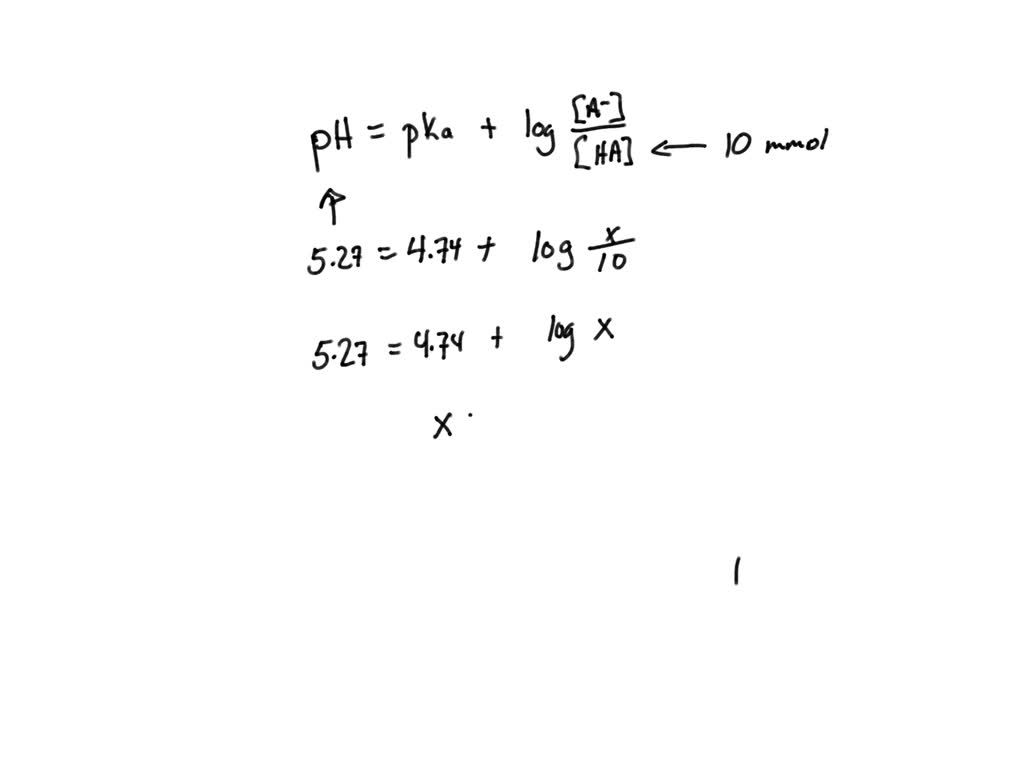 pH = pKa + log [A-]/[HA] ← 10 mmol
↑
5.27 = 4.74 + log x/10
5.27 = 4.74 + log x
x ·
|